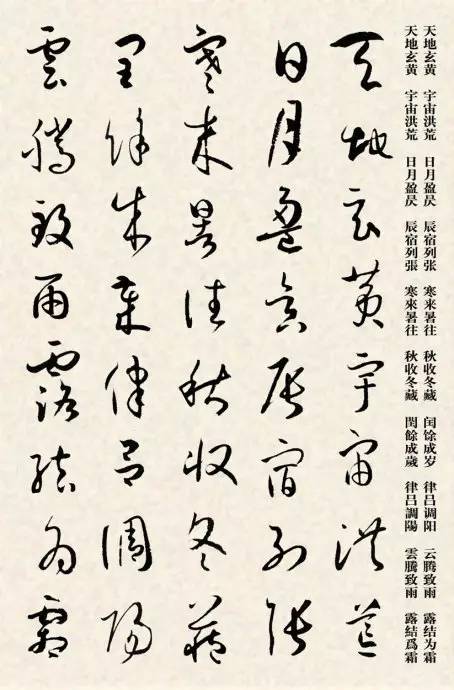 天地玄黄 宇宙洪荒 日月盈昃 辰宿列张 寒来暑往 秋收冬藏 闰馀成岁 律吕调阳 云腾致雨 露结为霜
天地玄黄 宇宙洪荒 日月盈昃 辰宿列張 寒來暑往 秋收冬藏 閏餘成歲 律呂調陽 雲騰致雨 露結爲霜
天地玄黄宇宙洪荒
日月盈昃辰宿列張
寒來暑往秋收冬藏
閏餘成歲律呂調陽
雲騰致雨露結爲霜